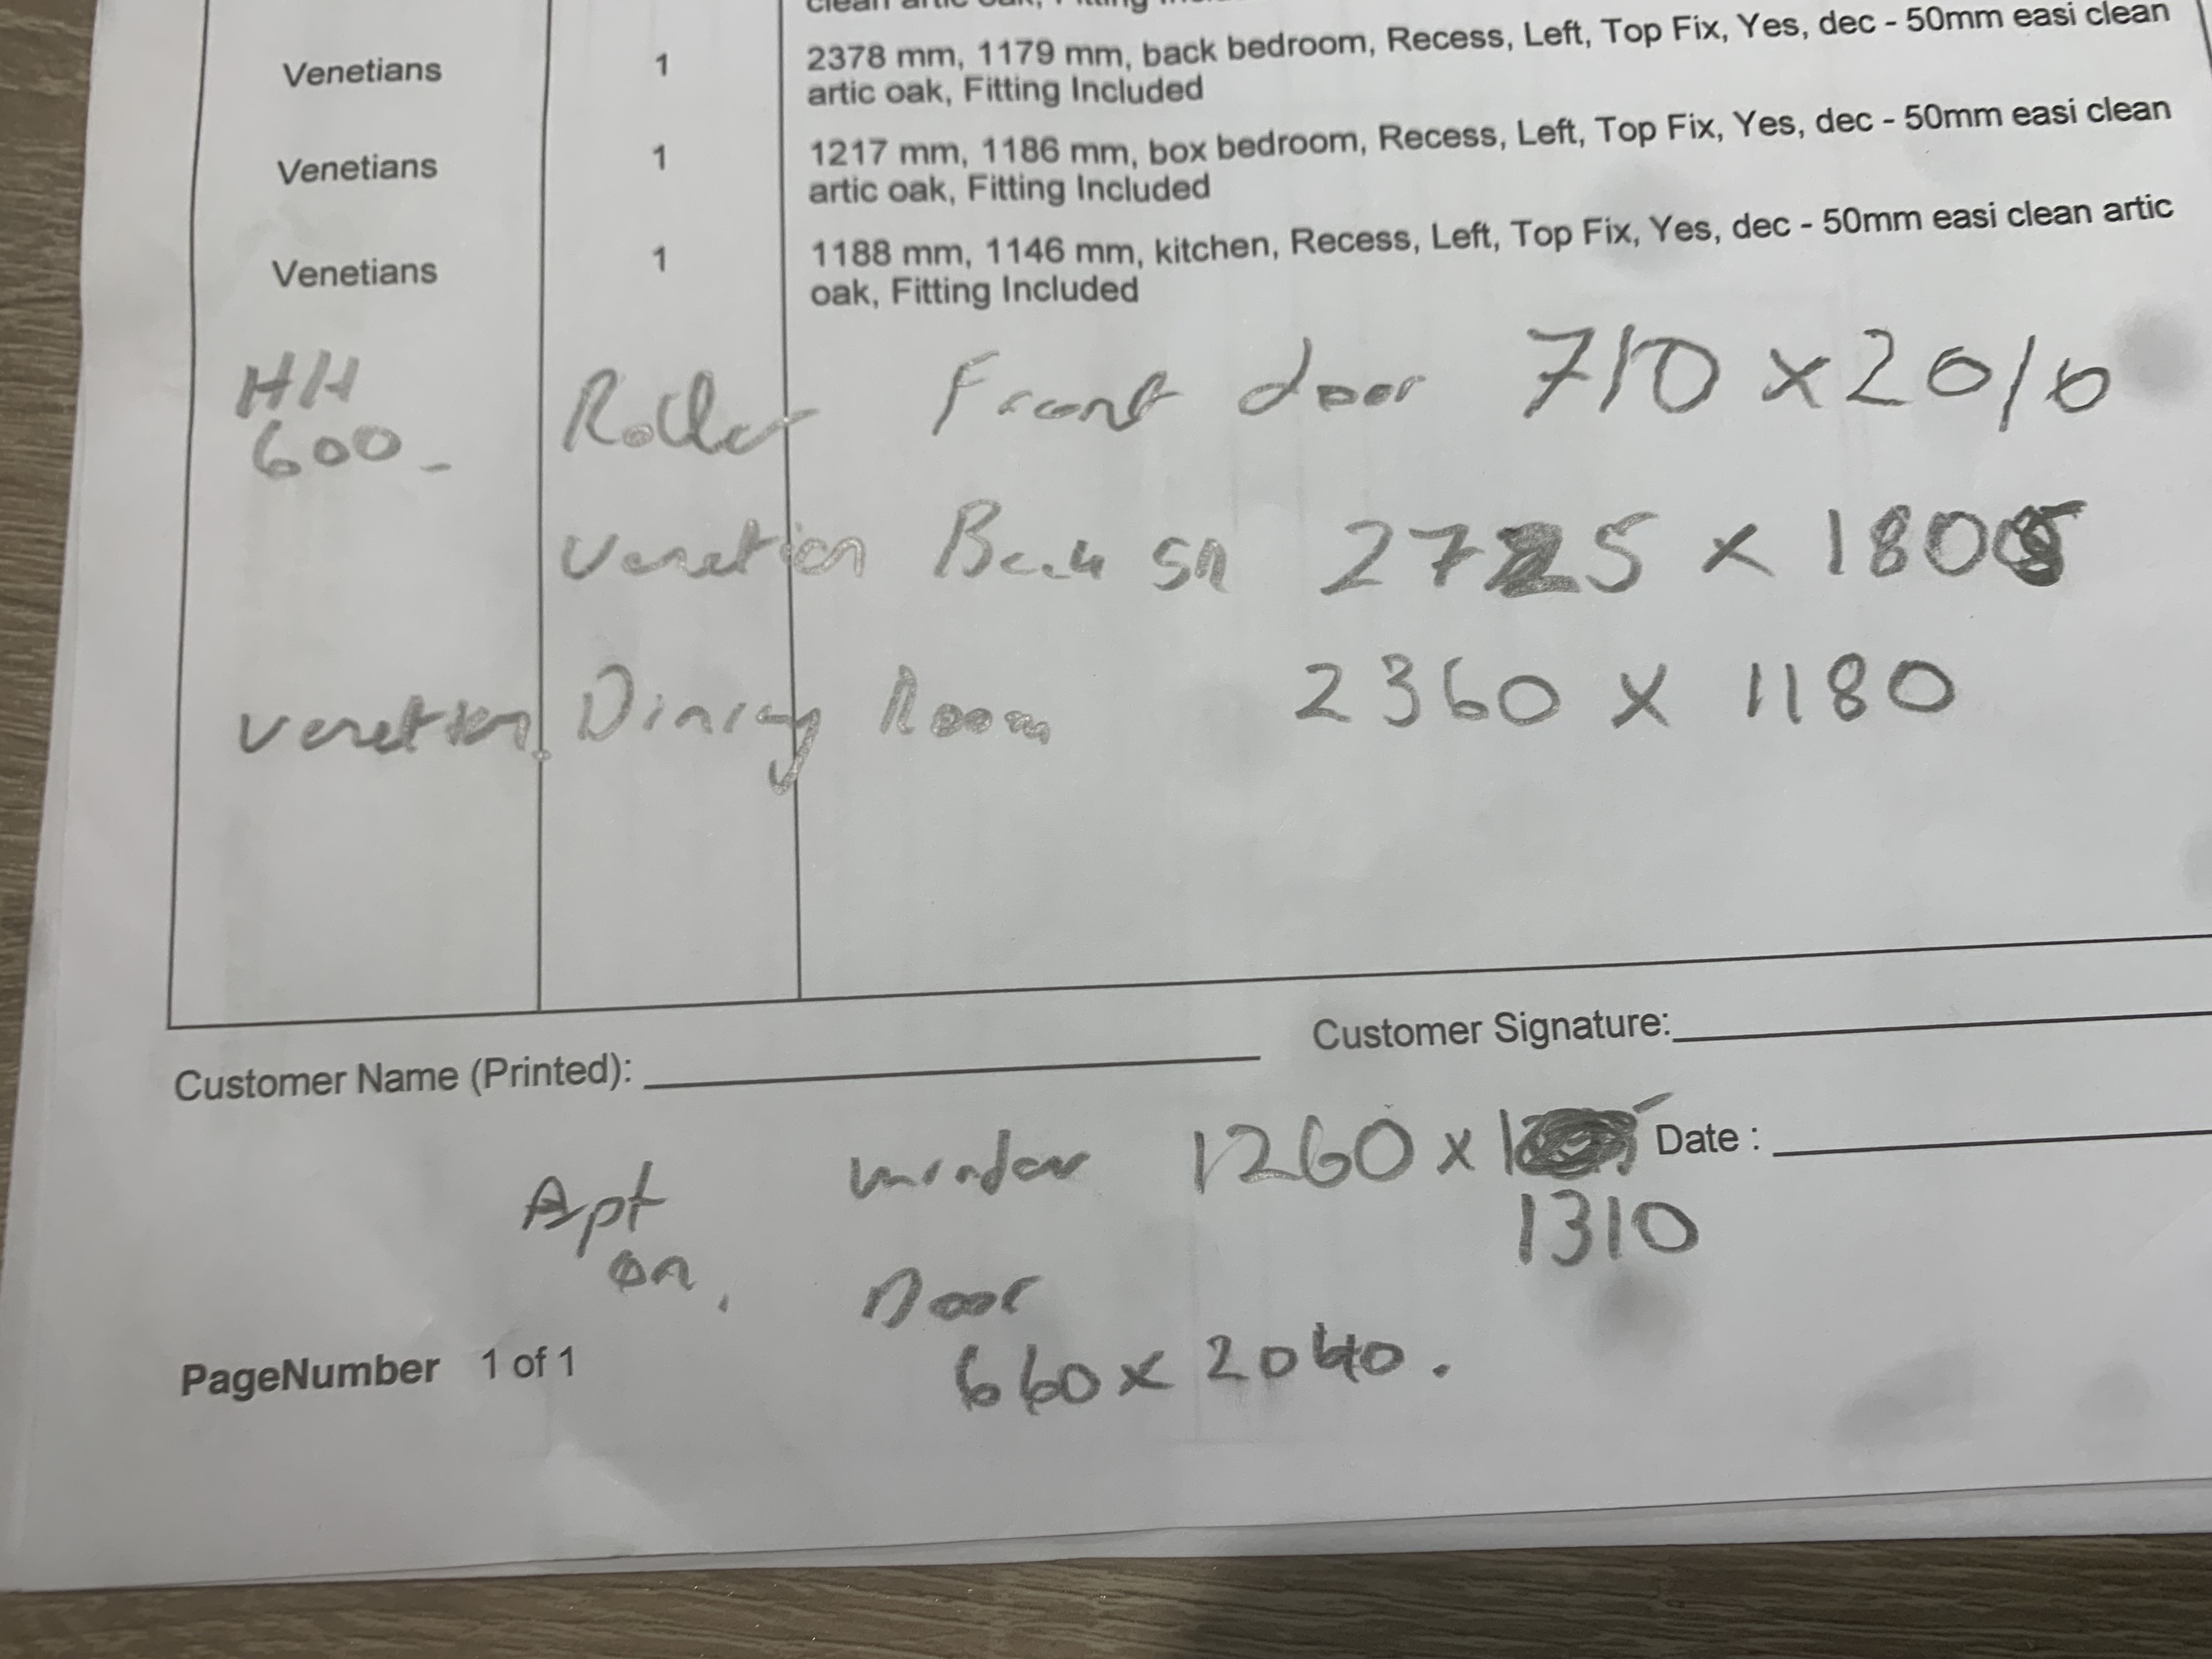 Venetians 1 2378 mm, 1179 mm, back bedroom, Recess, Left, Top Fix, Yes, dec - 50mm easi clean
artic oak, Fitting Included
Venetians 1 1217 mm, 1186 mm, box bedroom, Recess, Left, Top Fix, Yes, dec - 50mm easi clean
artic oak, Fitting Included
Venetians 1 1188 mm, 1146 mm, kitchen, Recess, Left, Top Fix, Yes, dec - 50mm easi clean artic
oak, Fitting Included
HH Roller Front door 710 x 2010
600 -
Venetian Back 2725 x 1805
Venetian Dining Room 2360 x 1180
Customer Name (Printed): Customer Signature:
window 1260 x Date :
Apt 1310
on.
Door
660 x 2040.
PageNumber 1 of 1